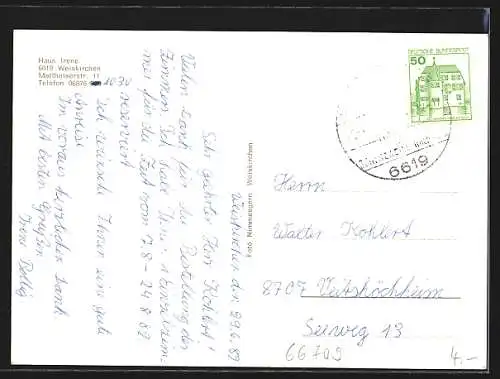 Haus Irene
6619 Weiskirchen
Mettlacherstr. 11
Telefon 06876
1030
Weiskirchen d. 29.6.82
Sehr geehrter Herr Kohlert!
Vielen Dank für die Bestellung der
Zimmer. Ich habe Ihnen
mer für die Zeit vom 7.8 - 24.8.82
reserviert.
Ich wünsche Ihnen eine gute
Anreise
Im voraus herzlichen Dank
Mit besten Grüßen
Irene
Foto Nimmesgern, Weiskirchen
50
DEUTSCHE BUNDESPOST
6619
Herrn
Walter Kohlert
8707 Veitshöchheim
Seeweg 13
66709
4.-